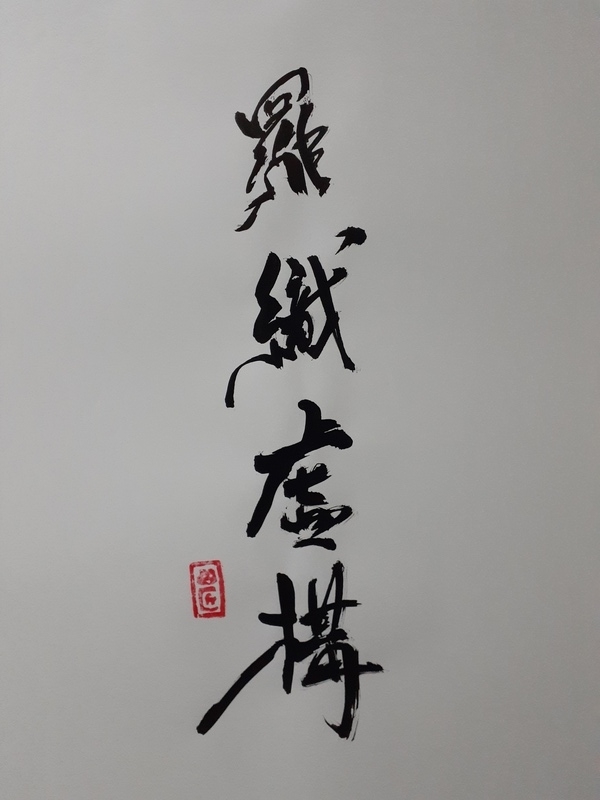 羅織虛構